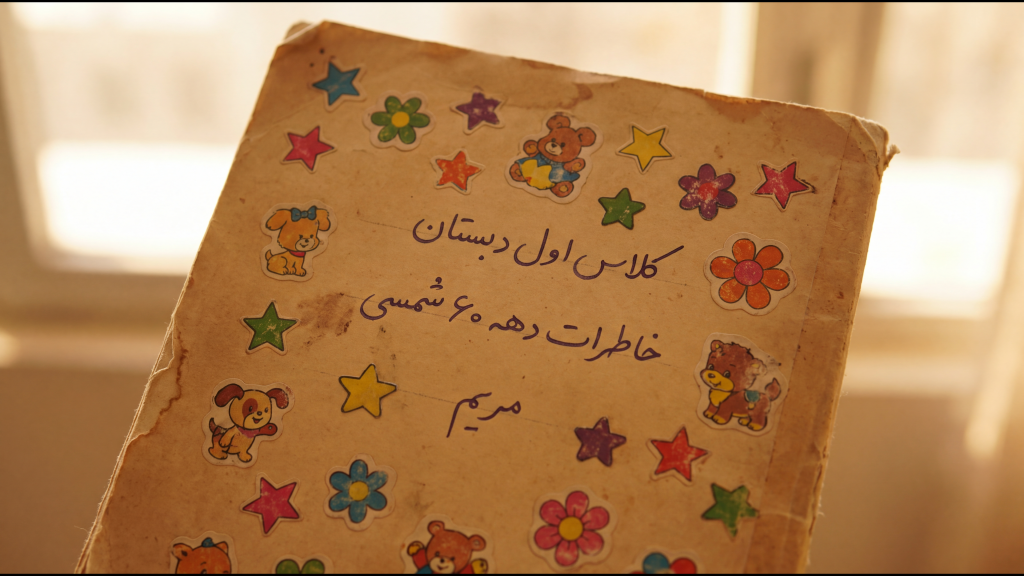 کلاس اول دبستان
خاطرات دهه ۶۰ شمسی
مریم